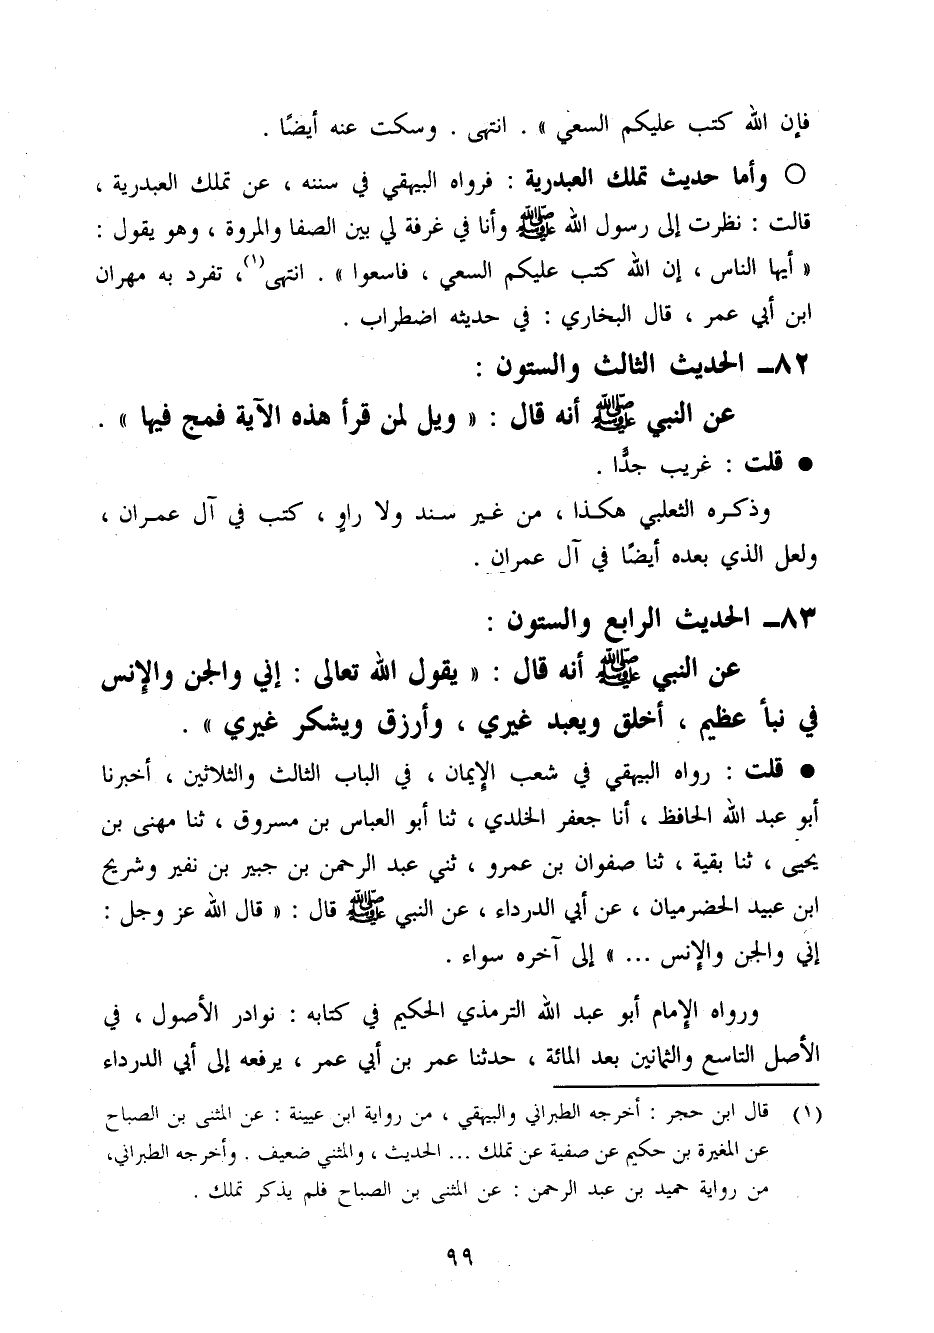 فإن الله كتب عليكم السعي » . انتهى . وسكت عنه أيضًا .
○ وأما حديث تملك العبدرية : فرواه البيهقي في سننه ، عن تملك العبدرية ،
قالت : نظرت إلى رسول الله ﷺ وأنا في غرفة لي بين الصفا والمروة ، وهو يقول :
« أيها الناس ، إن الله كتب عليكم السعي ، فاسعوا » . انتهى(١)، تفرد به مهران
ابن أبي عمر ، قال البخاري : في حديثه اضطراب .
٨٢ـ الحديث الثالث والستون :
عن النبي ﷺ أنه قال : « ويل لمن قرأ هذه الآية فمج فيها » .
● قلت : غريب جدًّا .
وذكـره الثعلبي هكـذا ، من غـير سـند ولا راوٍ ، كتب في آل عمـران ،
ولعل الذي بعده أيضًا في آل عمران .
٨٣ـ الحديث الرابع والستون :
عن النبي ﷺ أنه قال : « يقول الله تعالى : إني والجن والإنس
في نبأ عظيم ، أخلق ويعبد غيري ، وأرزق ويشكر غيري » .
● قلت : رواه البيهقي في شعب الإيمان ، في الباب الثالث والثلاثين ، أخبرنا
أبو عبد الله الحافظ ، أنا جعفر الخلدي ، ثنا أبو العباس بن مسروق ، ثنا مهنى بن
يحيى ، ثنا بقية ، ثنا صفوان بن عمرو ، ثني عبد الرحمن بن جبير بن نفير وشريح
ابن عبيد الحضرميان ، عن أبي الدرداء ، عن النبي ﷺ قال : « قال الله عز وجل :
إني والجن والإنس ... » إلى آخره سواء .
ورواه الإمام أبو عبد الله الترمذي الحكيم في كتابه : نوادر الأصول ، في
الأصل التاسع والثمانين بعد المائة ، حدثنا عمر بن أبي عمر ، يرفعه إلى أبي الدرداء
(١) قال ابن حجر : أخرجه الطبراني والبيهقي ، من رواية ابن عيينة : عن المثنى بن الصباح
عن المغيرة بن حكيم عن صفية عن تملك ... الحديث ، والمثنى ضعيف . وأخرجه الطبراني،
من رواية حميد بن عبد الرحمن : عن المثنى بن الصباح فلم يذكر تملك .
٩٩